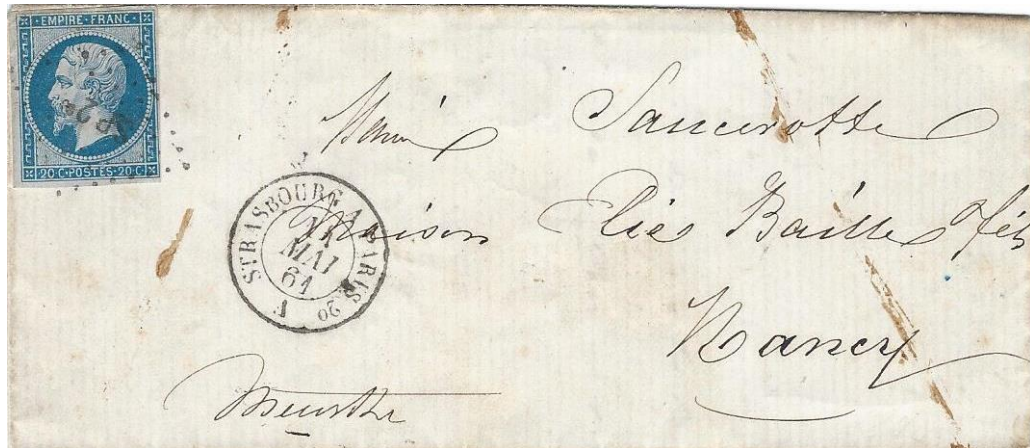 EMPIRE · FRANC ·
20 · C · POSTES · 20 · C ·
SP 2º
STRASBOURG A PARIS 2º
MAI
61
Sancerotte
Maison Elie Baille
Nancy
Meurthe